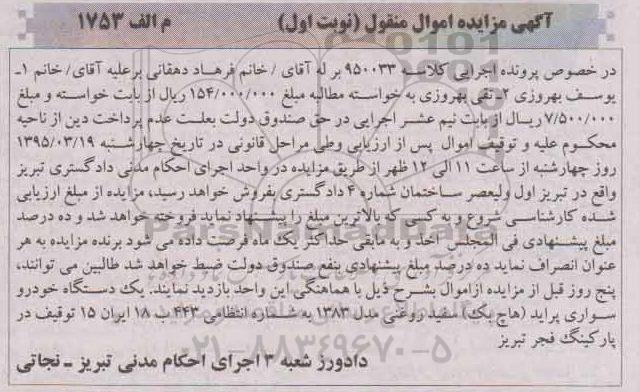 آگهی مزایده اموال منقول (نوبت اول) م الف ۱۷۵۳
در خصوص پرونده اجرایی کلاسه ۹۵۰۰۳۳ بر له آقای / خانم فرهاد دهقانی برعلیه آقای/ خانم ۱ـ
یوسف بهروزی ۲ـ تقی بهروزی به خواسته مطالبه مبلغ ۱۵۴/۰۰۰/۰۰۰ ریال از بابت خواسته و مبلغ
۷/۵۰۰/۰۰۰ ریسال از بابت نیم عشر اجرایی در حق صندوق دولت بعلت عدم پرداخت دین از ناحیه
محکوم علیه و توقیف اموال پس از ارزیابی وطی مراحل قانونی در تاریخ چهارشنبه ۱۳۹۵/۰۳/۱۹
روز چهارشنبه از ساعت ۱۱ الی ۱۲ ظهر از طریق مزایده در واحد اجرای احکام مدنی دادگستری تبریز
واقع در تبریز اول ولیعصر ساختمان شماره ۴ دادگستری بفروش خواهد رسید، مزایده از مبلغ ارزیابی
شده کارشناسی شروع و به کسی که بالاترین مبلغ را پیشنهاد نماید فروخته خواهد شد و ده درصد
مبلغ پیشنهادی فی المجلس اخذ و به مابقی حداکثر یک ماه فرصت داده می شود برنده مزایده به هر
عنوان انصراف نماید ده درصد مبلغ پیشنهادی بنفع صندوق دولت ضبط خواهد شد طالبین می توانند،
پنج روز قبل از مزایده ازاموال بشرح ذیل با هماهنگی این واحد بازدید نمایند. یک دستگاه خودرو
سواری پراید (هاچ بک) سفید روغنی مدل ۱۳۸۳ به شماره انتظامی ۴۴۳ ب ۱۸ ایران ۱۵ توقیف در
پارکینگ فجر تبریز
دادورز شعبه ۳ اجرای احکام مدنی تبریز ـ نجاتی
ParsNamadData
۰۲۱-۸۸۳۴۹۶۷۰-۵